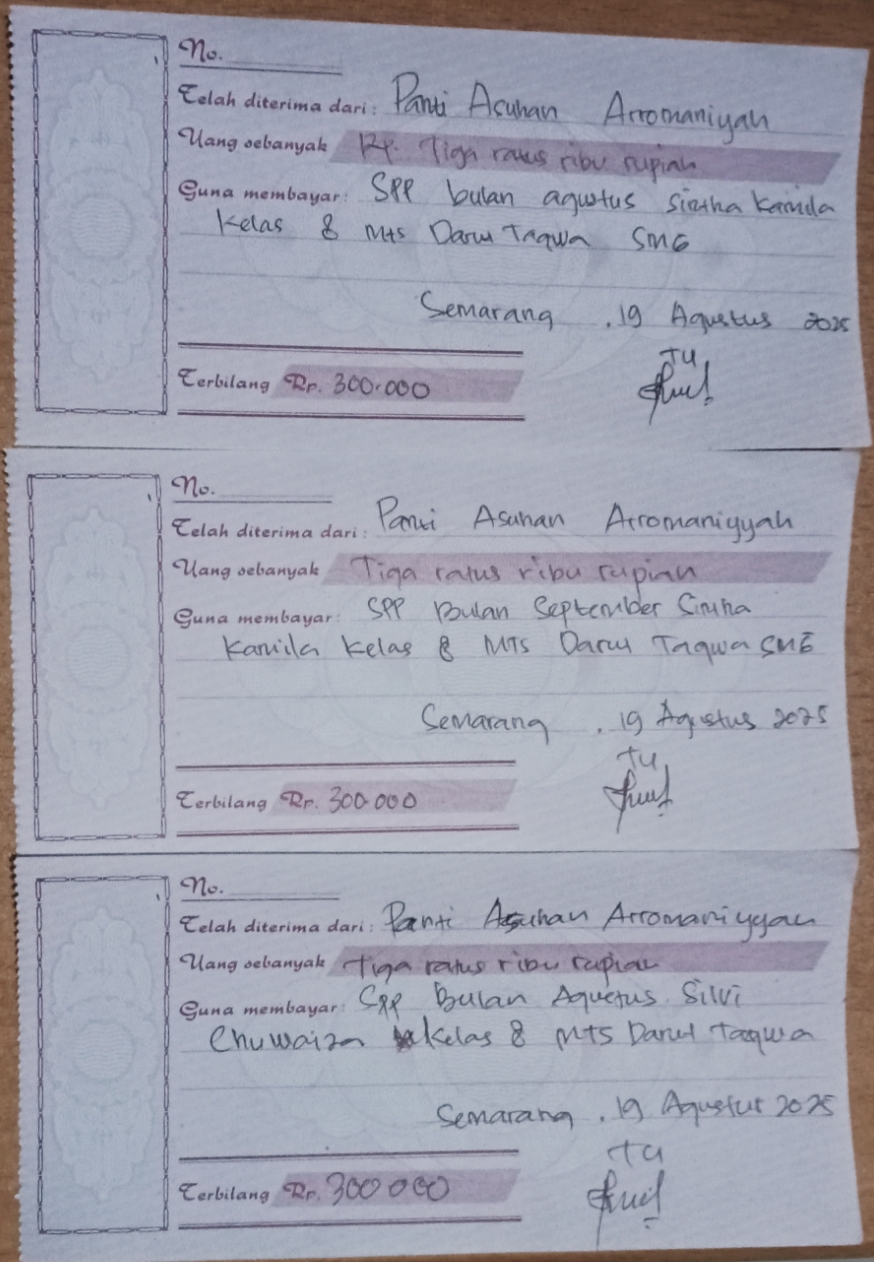 No.
Telah diterima dari: Panti Asuhan Arromaniyah
Uang sebanyak Rp. Tiga ratus ribu rupiah
Guna membayar: SPP bulan agustus Sintha Kamila
Kelas 8 Mts Darut Taqwa SMG
Semarang, 19 Agustus 2025
TU
Terbilang Rp. 300.000
No.
Telah diterima dari: Panti Asuhan Arromaniyyah
Uang sebanyak Tiga ratus ribu rupiah
Guna membayar: SPP Bulan September Sintha
Kamila Kelas 8 MTS Darut Taqwa SMG
Semarang, 19 Agustus 2025
TU
Terbilang Rp. 300.000
No.
Telah diterima dari: Panti Asuhan Arromaniyyah
Uang sebanyak Tiga ratus ribu rupiah
Guna membayar: Spp Bulan Agustus Silvi
Chuwaiza Kelas 8 MTS Darut Taqwa
Semarang, 19 Agustus 2025
TU
Terbilang Rp. 300 000